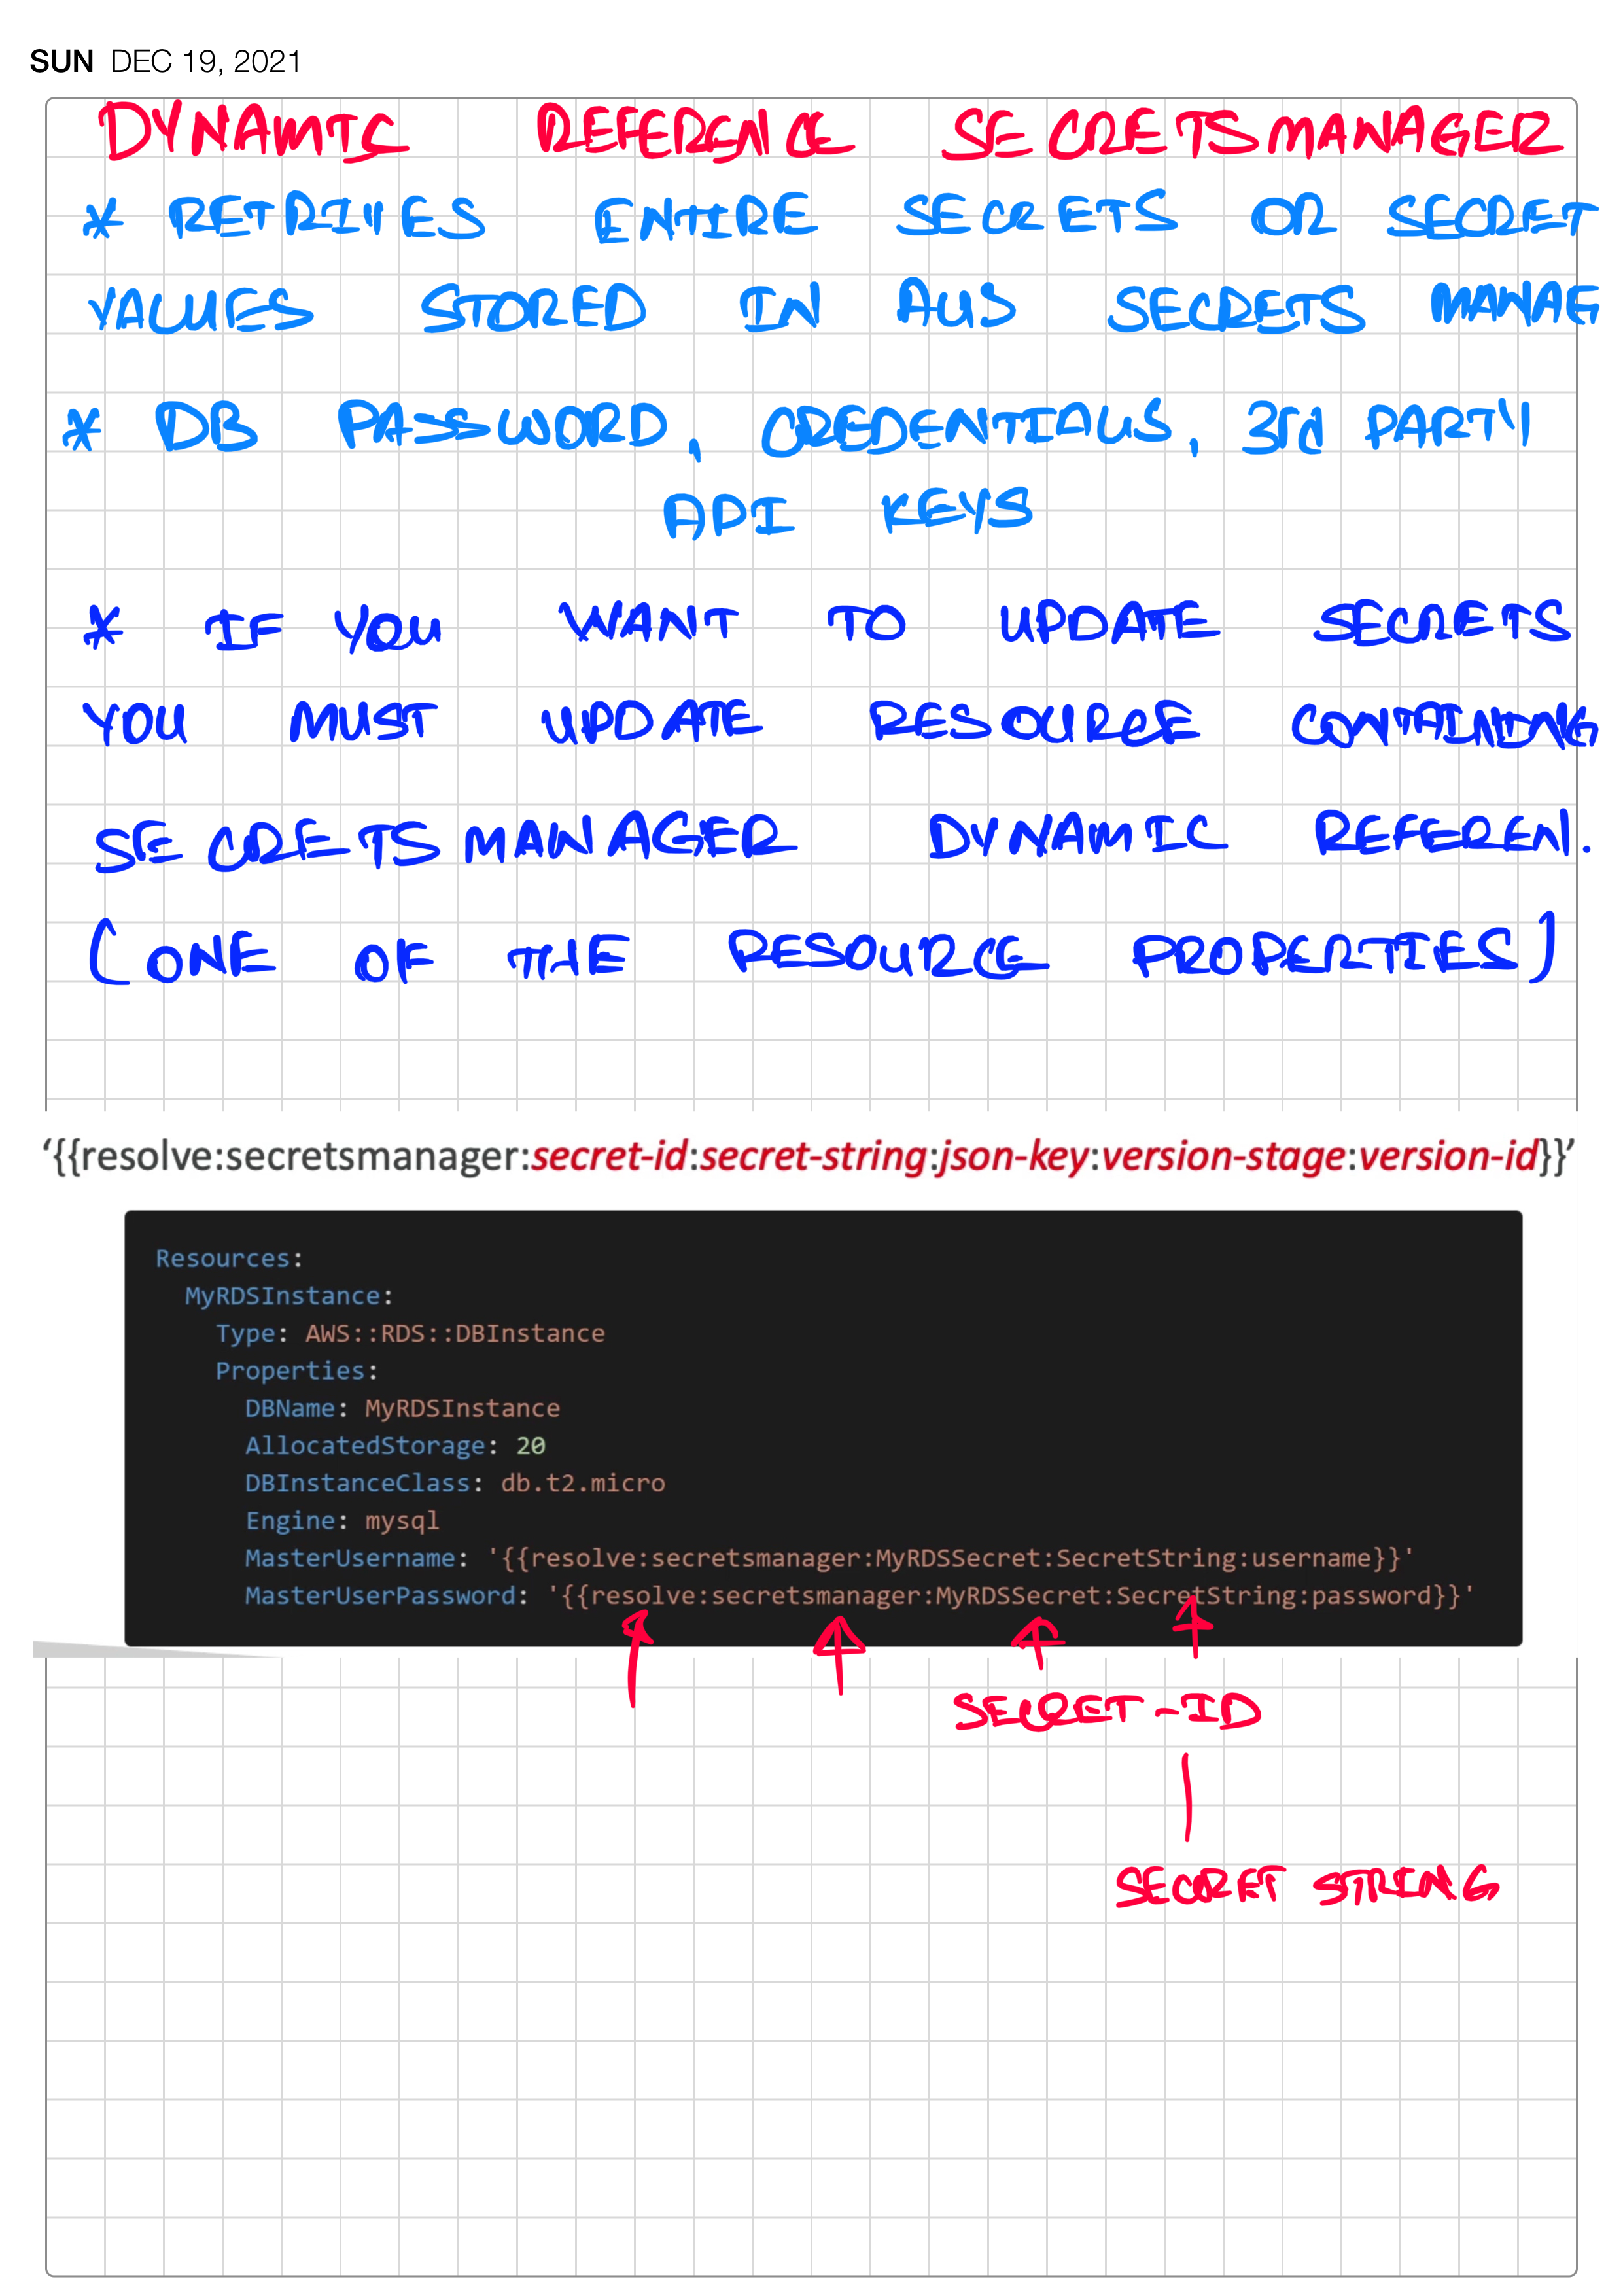 SUN DEC 19, 2021
DYNAMIC REFERENCE SECRETSMANAGER
* RETRIVES ENTIRE SECRETS OR SECRET
VALUES STORED IN AWS SECRETS MANAG
* DB PASSWORD, CREDENTIALS, 3rd PARTY
API KEYS
* IF YOU WANT TO UPDATE SECRETS
YOU MUST UPDATE RESOURCE CONTAINING
SECRETSMANAGER DYNAMIC REFEREN.
(ONE OF THE RESOURCE PROPERTIES)
‘{{resolve:secretsmanager:secret-id:secret-string:json-key:version-stage:version-id}}’
Resources:
MyRDSInstance:
Type: AWS::RDS::DBInstance
Properties:
DBName: MyRDSInstance
AllocatedStorage: 20
DBInstanceClass: db.t2.micro
Engine: mysql
MasterUsername: '{{resolve:secretsmanager:MyRDSSecret:SecretString:username}}'
MasterUserPassword: '{{resolve:secretsmanager:MyRDSSecret:SecretString:password}}'
SECRET-ID
SECRET STRING